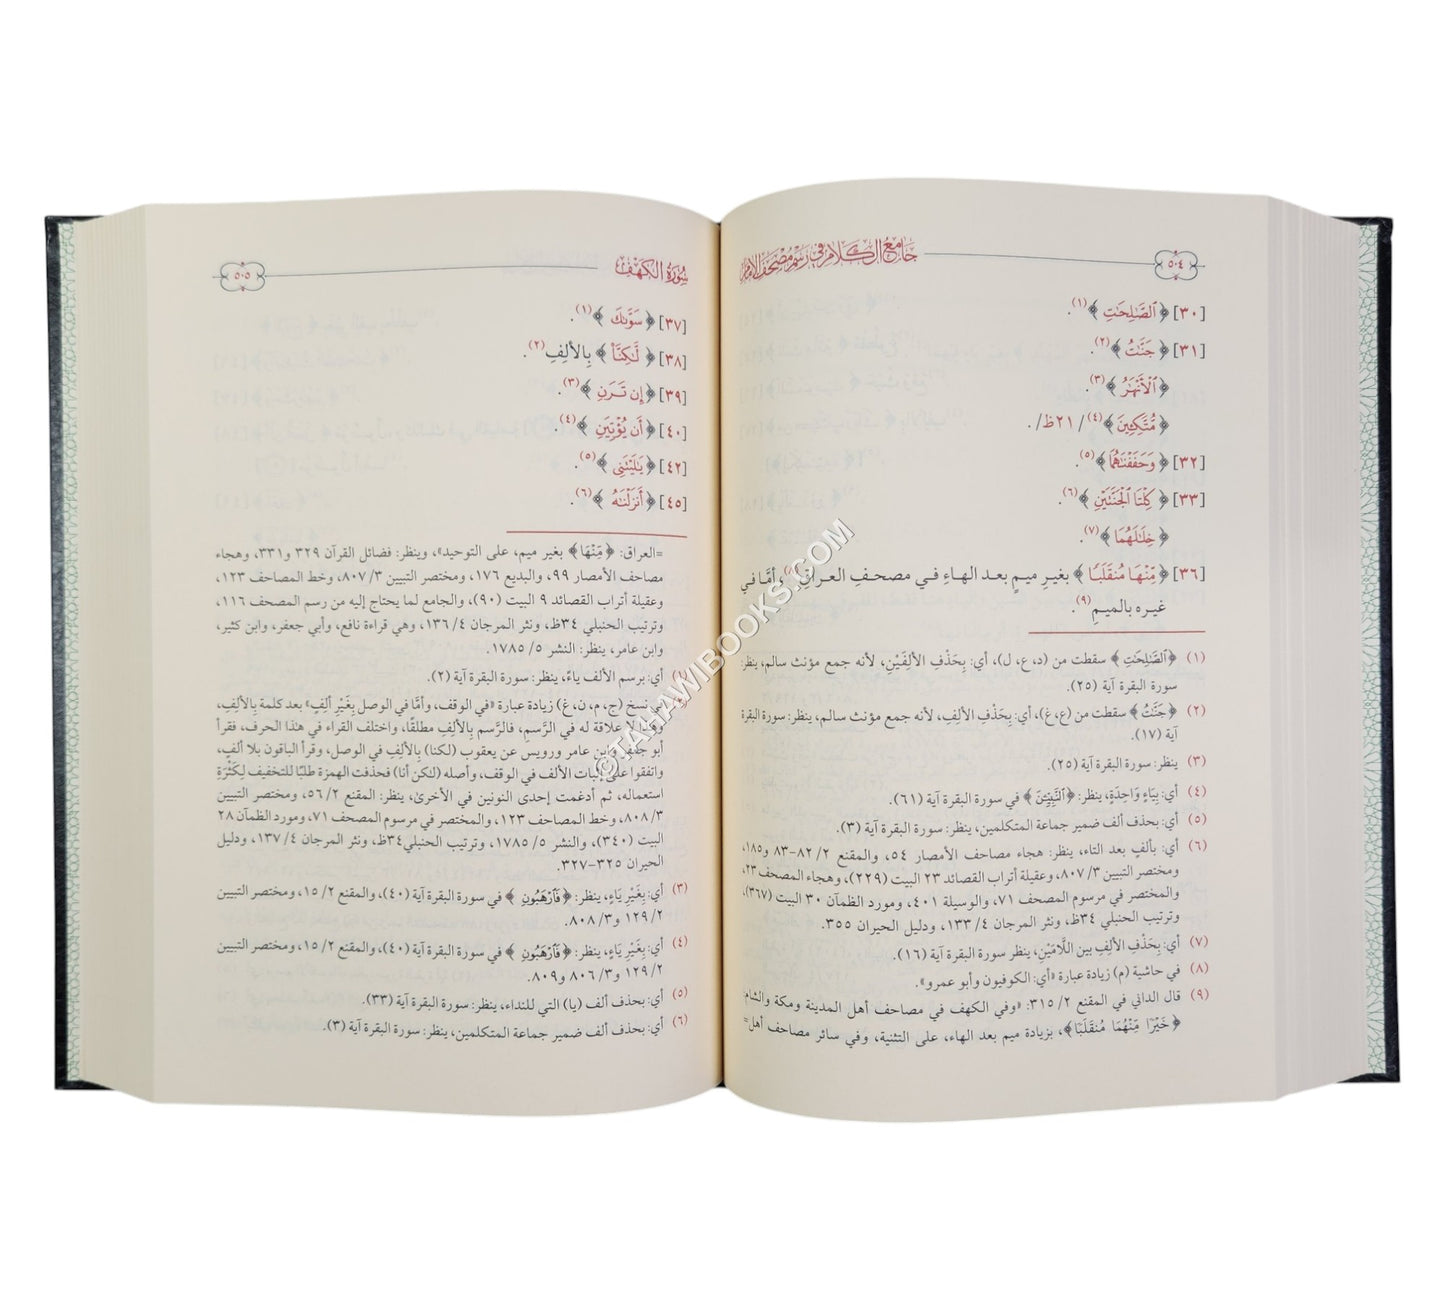 ٥٠٤ جامع الكلام في رسم مصحف الإمام
[٣٠] ﴿ٱلصَّٰلِحَٰتِ﴾(١).
[٣١] ﴿جَنَّٰتُ﴾(٢).
﴿ٱلْأَنْهَٰرُ﴾(٣).
﴿مُّتَّكِـِٔينَ﴾(٤) /٢١ظ/.
[٣٢] ﴿وَحَفَفْنَٰهُمَا﴾(٥).
[٣٣] ﴿كِلْتَا ٱلْجَنَّتَيْنِ﴾(٦).
﴿خِلَٰلَهُمَا﴾(٧).
[٣٦] ﴿مِّنْهَا مُنقَلَبًا﴾ بغيرِ ميمٍ بعـد الهاءِ فـي مصحـفِ العـراقِ(٨)، وأمَّا في
غيـره بالميـمِ(٩).
(١) ﴿ٱلصَّٰلِحَٰتِ﴾ سقطت من (د، ع، ل)، أي: بِحَذْفِ الألِفَيْنِ، لأنه جمع مؤنث سالم، ينظر:
سورة البقرة آية (٢٥).
(٢) ﴿جَنَّٰتُ﴾ سقطت من (ع، غ)، أي: بِحَذْفِ الألِفِ، لأنه جمع مؤنث سالم، ينظر: سورة البقرة
آية (١٧).
(٣) ينظر: سورة البقرة آية (٢٥).
(٤) أي: بِيَاءٍ وَاحِدَةٍ، ينظر: ﴿ٱلنَّبِيِّـۧنَ﴾ في سورة البقرة آية (٦١).
(٥) أي: بحذف ألف ضمير جماعة المتكلمين، ينظر: سورة البقرة آية (٣).
(٦) أي: بألفٍ بعد التاء، ينظر: هجاء مصاحف الأمصار ٥٤، والمقنع ٢/ ٨٢-٨٣ و١٨٥،
ومختصر التبيين ٣/ ٨٠٧، وعقيلة أتراب القصائد ٢٣ البيت (٢٢٩)، وهجاء المصحف ٢٣،
والمختصر في مرسوم المصحف ٧١، والوسيلة ٤٠١، ومورد الظمآن ٣٠ البيت (٣٦٧)،
وترتيب الحنبلي ٣٤ظ، ونثر المرجان ٤/ ١٣٣، ودليل الحيران ٣٥٥.
(٧) أي: بِحَذْفِ الألِفِ بين اللَّامَيْنِ، ينظر سورة البقرة آية (١٦).
(٨) في حاشية (م) زيادة عبارة «أي: الكوفيون وأبو عمرو».
(٩) قال الداني في المقنع ٢/ ٣١٥: «وفي الكهف في مصاحف أهل المدينة ومكة والشام:
﴿خَيْرًا مِّنْهُمَا مُنقَلَبًا﴾، بزيادة ميم بعد الهاء، على التثنية، وفي سائر مصاحف أهل=
سورة الكهف ٥٠٥
[٣٧] ﴿سَوَّىٰكَ﴾(١).
[٣٨] ﴿لَّٰكِنَّا۠﴾ بِالألِفِ(٢).
[٣٩] ﴿إِن تَـرَنِ﴾(٣).
[٤٠] ﴿أَن يُؤْتِيَنِ﴾(٤).
[٤٢] ﴿يَٰلَيْتَنِي﴾(٥).
[٤٥] ﴿أَنزَلْنَٰهُ﴾(٦).
=العراق: ﴿مِّنْهَا﴾ بغير ميم، على التوحيد»، وينظر: فضائل القرآن ٣٢٩ و٣٣١، وهجاء
مصاحف الأمصار ٩٩، والبديع ١٧٦، ومختصر التبيين ٣/ ٨٠٧، وخط المصاحف ١٢٣،
وعقيلة أتراب القصائد ٩ البيت (٩٠)، والجامع لما يحتاج إليه من رسم المصحف ١١٦،
وترتيب الحنبلي ٣٤ظ، ونثر المرجان ٤/ ١٣٦، وهي قراءة نافع، وأبي جعفر، وابن كثير،
وابن عامر، ينظر: النشر ٥/ ١٧٨٥.
أي: برسم الألف ياءً، ينظر: سورة البقرة آية (٢).
نسخ (ج، م، ن، غ) زيادة عبارة «في الوقف، وأمَّا في الوصل بِغَيْرِ ألِفٍ» بعد كلمة بِالألِفِ،
لا علاقة له في الرَّسمِ، فالرَّسم بِالألِفِ مطلقًا، واختلف القراء في هذا الحرف، فقرأ
أبو جعفر وابن عامر ورويس عن يعقوب (لكنا) بِالألِفِ في الوصل، وقرأ الباقون بلا ألف،
واتفقوا على إثبات الألف في الوقف، وأصله (لكن أنا) فحذفت الهمزة طلبًا للتخفيف لِكَثْرَةِ
استعماله، ثم أدغمت إحدى النونين في الأخرىٰ، ينظر: المقنع ٢/ ٥٦، ومختصر التبيين
٣/ ٨٠٨، وخط المصاحف ١٢٣، والمختصر في مرسوم المصحف ٧١، ومورد الظمآن ٢٨
البيت (٣٤٠)، والنشر ٥/ ١٧٨٥، وترتيب الحنبلي٣٤ظ، ونثر المرجان ٤/ ١٣٧، ودليل
الحيران ٣٢٥-٣٢٧.
(٣) أي: بِغَيْرِ يَاءٍ، ينظر: ﴿فَٱرْهَبُونِ﴾ في سورة البقرة آية (٤٠)، والمقنع ٢/ ١٥، ومختصر التبيين
٢/ ١٢٩ و٣/ ٨٠٨.
(٤) أي: بِغَيْرِ يَاءٍ، ينظر: ﴿فَٱرْهَبُونِ﴾ في سورة البقرة آية (٤٠)، والمقنع ٢/ ١٥، ومختصر التبيين
٢/ ١٢٩ و٣/ ٨٠٦ و٨٠٩.
(٥) أي: بحذف ألف (يا) التي للنداء، ينظر: سورة البقرة آية (٣٣).
(٦) أي: بحذف ألف ضمير جماعة المتكلمين، ينظر: سورة البقرة آية (٣).
©TAHAWIBOOKS.COM